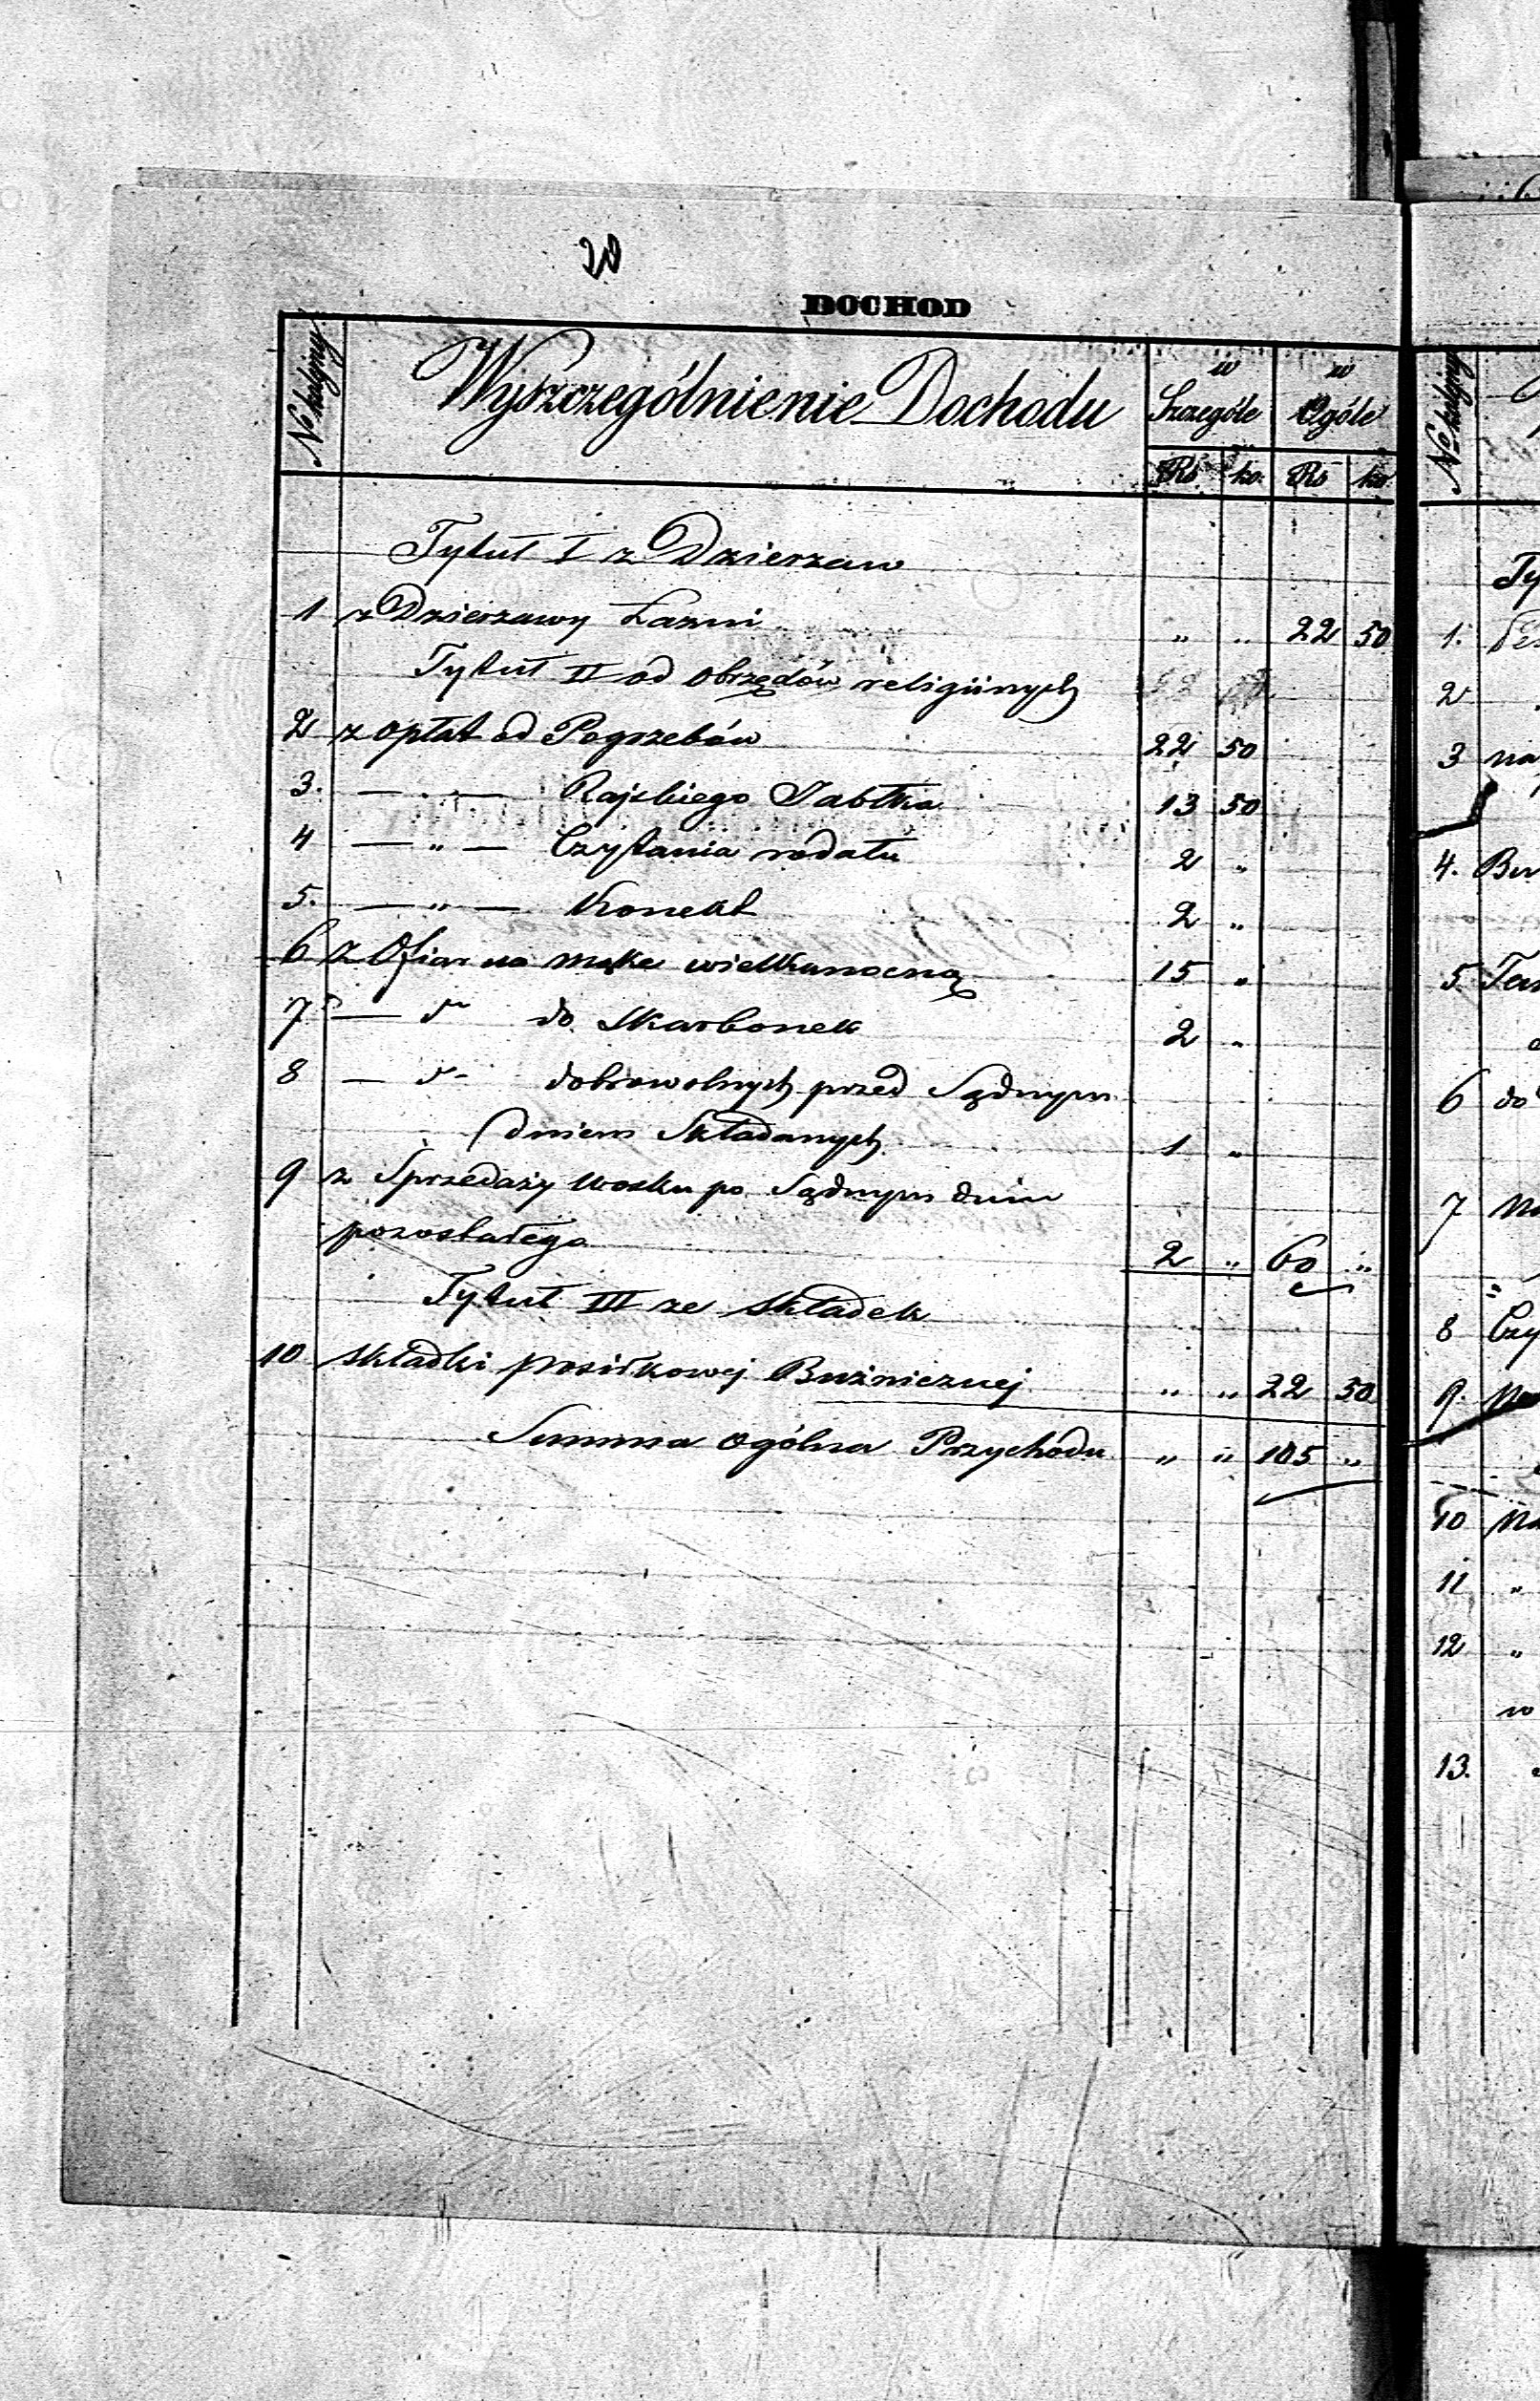 20
DOCHOD
No kolejny
Wyszczególnienie Dochodu
w Szczególe
w Ogóle
Rs ko. Rs ko.
Tytuł I z Dzierzaw
1 z Dzierzawy Łazni " " 22 50
Tytuł II od obrzędów religijnych
2 z opłat od Pogrzebów 22 50
3. — " — Rajskiego Jabłka 13 50
4 — " — Czytania rodału 2 "
5. — " — 2 "
6 z Ofiar na mąke wielkanocną 15 "
7 — do Skarbonek 2 "
8 — dobrowolnych przed Sądnym
dniem Składanych 1 "
9 z Sprzedaży wosku po Sądnym dniu
pozostałego 2 " 60 "
Tytuł III ze składek
10 składki posiłkowej Bużnicznej " " 22 50
Summa ogólna Przychodu " " 105 "
No kolejny
Ty
1.
2
3 na
4.
5.
6 do
7 Na
8 Czy
9.
10 Na
11 "
12 "
w
13.